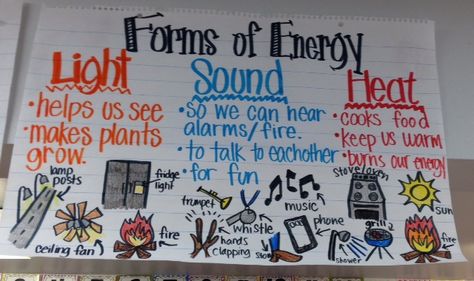 Forms of Energy
Light
• helps us see
• makes plants
grow.
Sound
• so we can hear
alarms/fire.
• to talk to eachother
• for fun
Heat
• cooks food
• keep us warm
• burns our energy
lamp
posts
fridge
light
ceiling fan
fire
trumpet
whistle
hands
clapping
music
phone
stove/oven
sun
grill
shower
fire